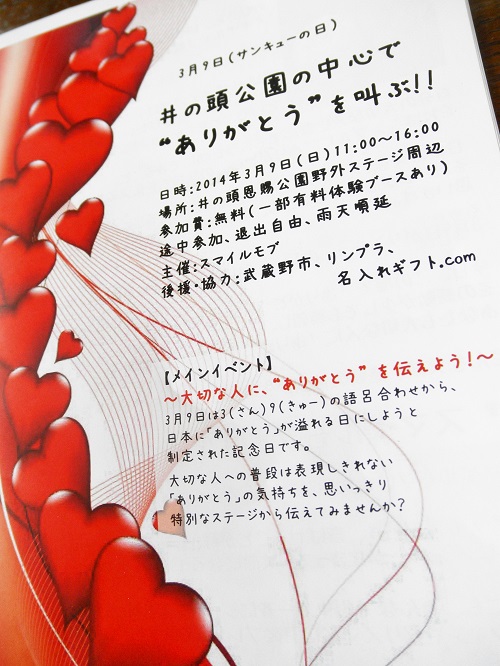 3月9日(サンキューの日)
井の頭公園の中心で
"ありがとう"を叫ぶ!!
日時:2014年3月9日(日)11:00〜16:00
場所:井の頭恩賜公園野外ステージ周辺
参加費:無料(一部有料体験ブースあり)
途中参加、退出自由、雨天順延
主催:スマイルモブ
後援・協力:武蔵野市、リンプラ、
名入れギフト.com
【メインイベント】
〜大切な人に、"ありがとう"を伝えよう!〜
3月9日は3(さん)9(きゅー)の語呂合わせから、
日本に「ありがとう」が溢れる日にしようと
制定された記念日です。
大切な人への普段は表現しきれない
「ありがとう」の気持ちを、思いっきり
特別なステージから伝えてみませんか?